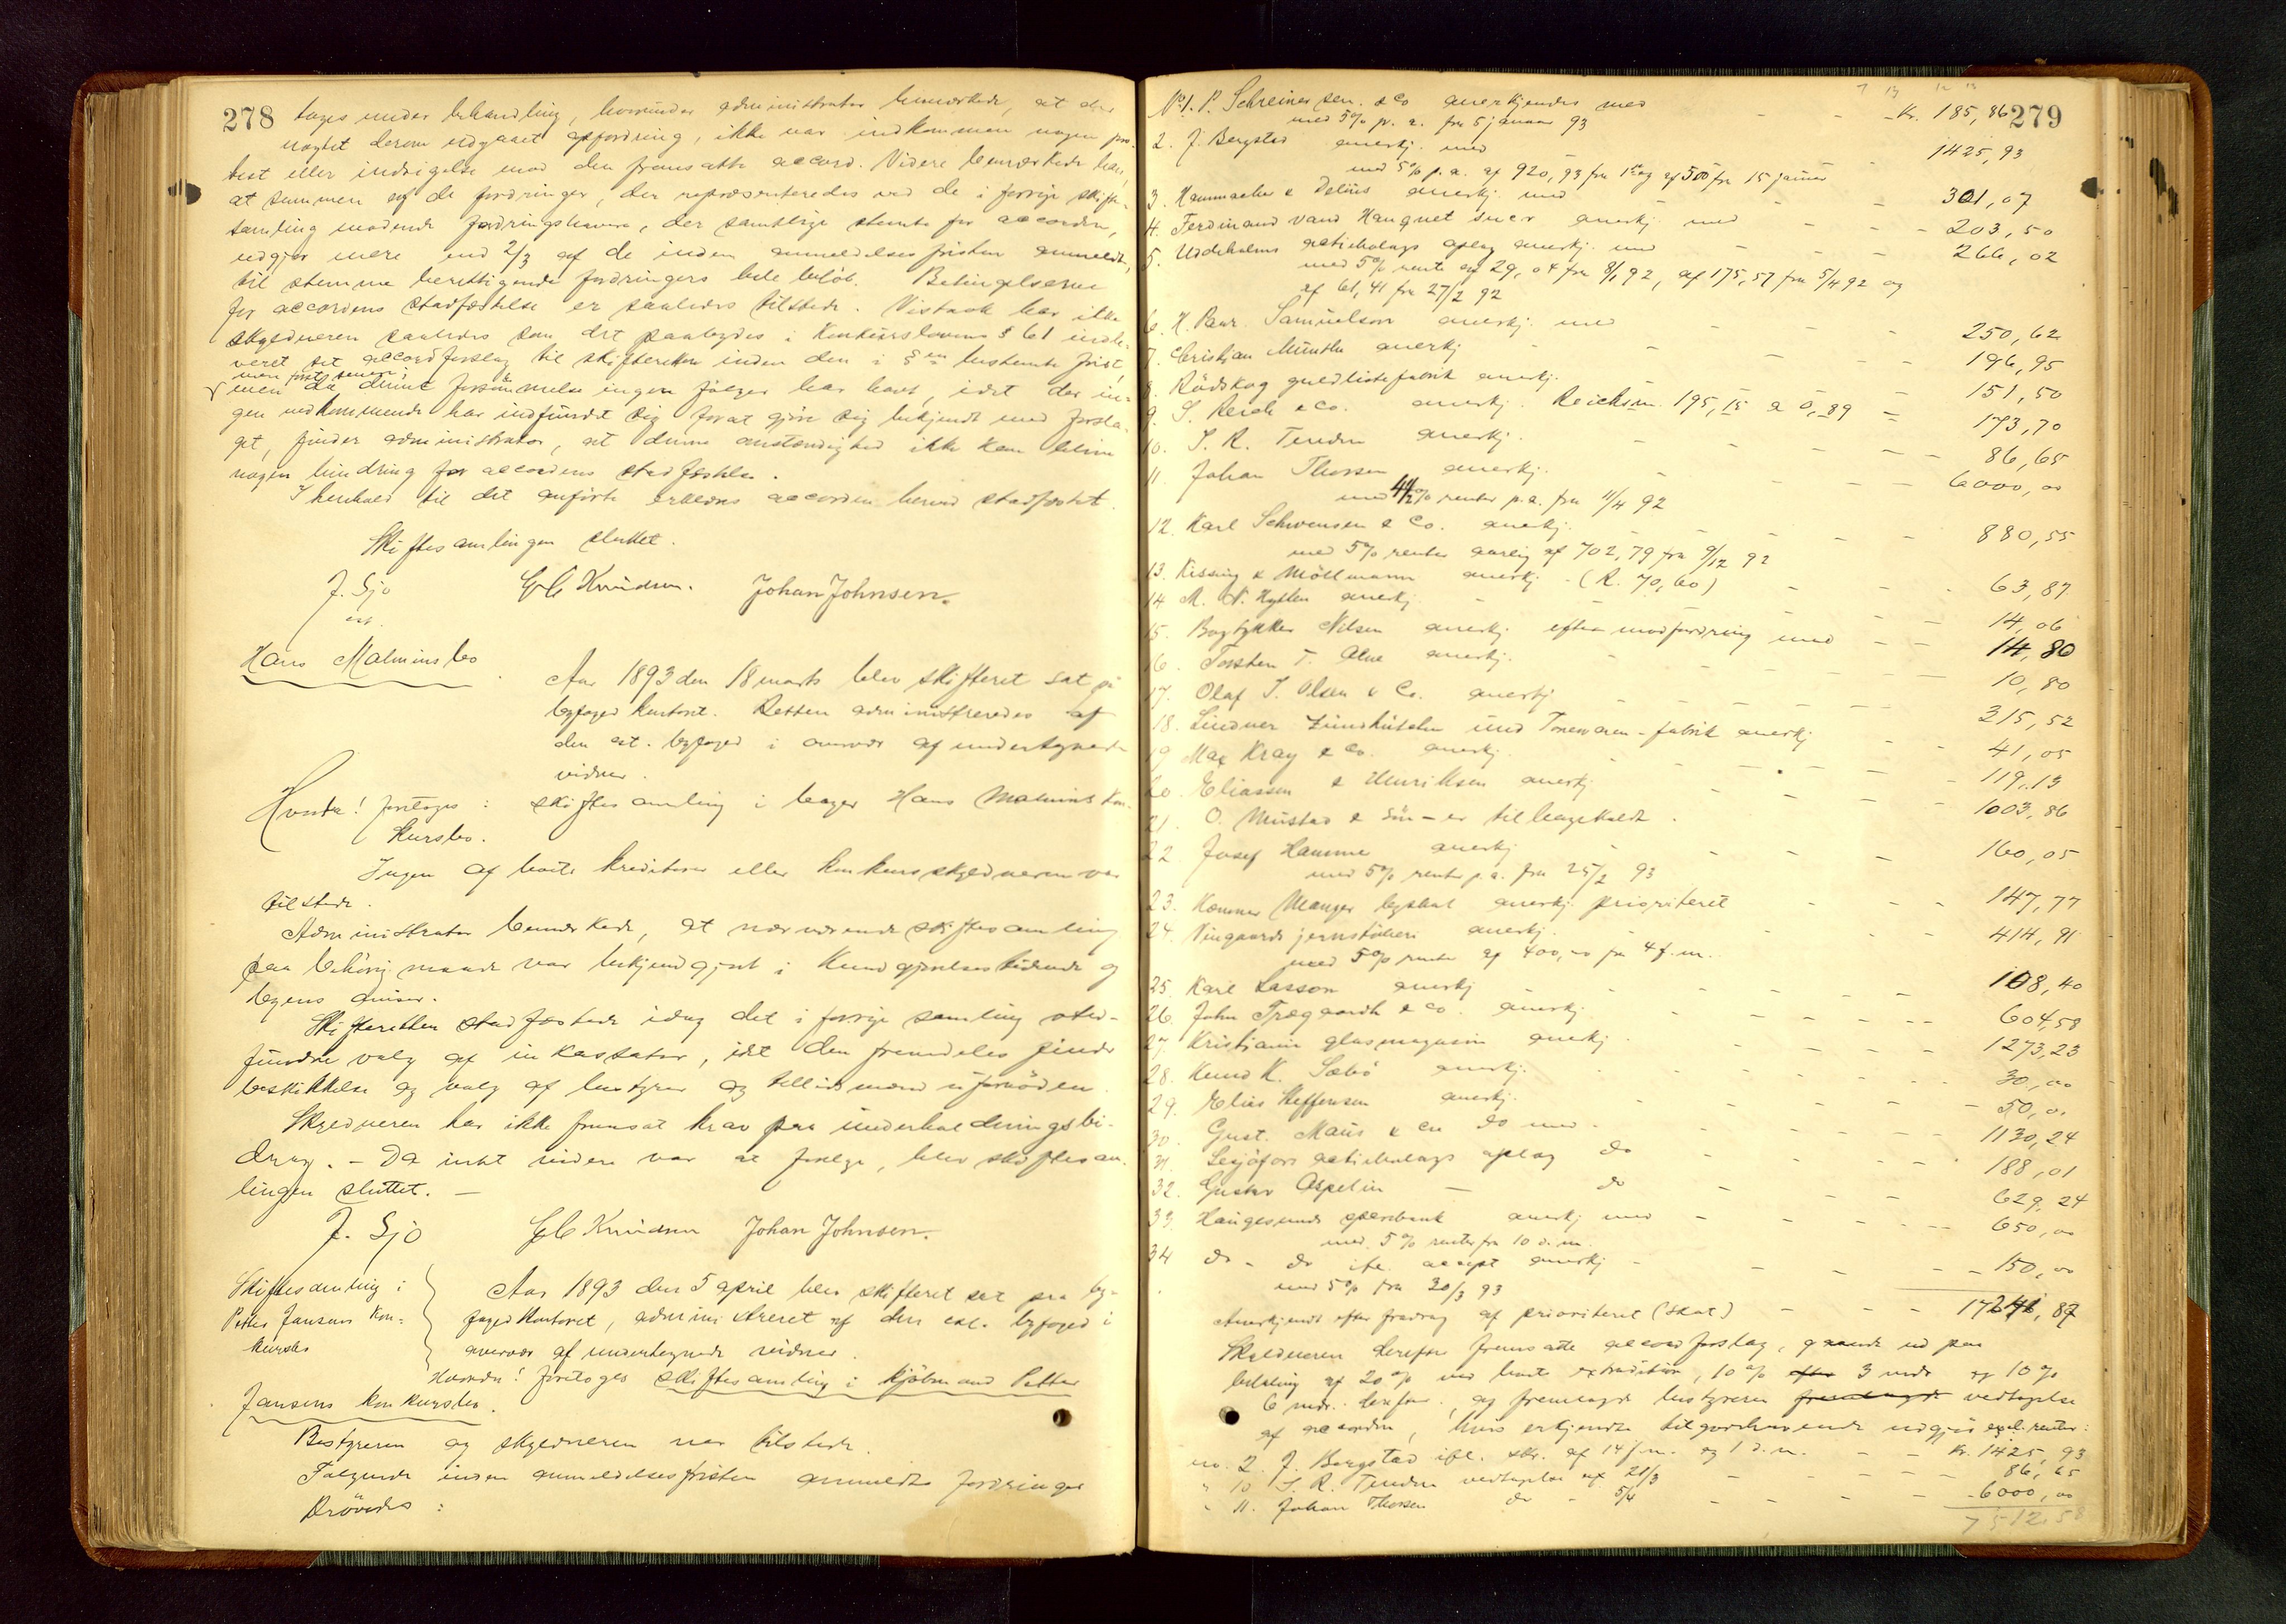 278 tages under behandling, hvorunder administrator bemærkede, at der
uagtet derom udgaaet opfordring, ikke var indkommen nogen pro-
test eller indsigelse mod den fremsatte accord. Videre bemærkede han,
at summen af de fordringer, der repræsenteredes ved de i forrige skifte-
samling mødende fordringshavere, der samtlige stemte for accorden,
udgjør mere end 2/3 af de inden anmeldelsesfristen anmeldte,
til stemme berettigende fordringers hele beløb. Betingelserne
for accordens stadfæstelse er saaledes tilstede. Vistnok har ikke
skyldneren saaledes som det paabydes i Konkurslovens § 61 indle-
veret sit accordforslag til skifteretten inden den i §en bestemte frist,
men først senere;
men da denne forsømmelse ingen følger har havt, idet der in-
gen vedkommende har indfundet sig forat gjøre sig bekjendt med forsla-
get, finder administrator, at denne omstændighed ikke kan blive
nogen hindring for accordens stadfæstelse.
I henhold til det anførte erklæres accorden herved stadfæstet.
Skiftesamlingen sluttet.
J. Sjo
cst.
G C Knudsen. Johan Johnsen.
Hans Malmins bo
Aar 1893 den 18 marts blev skifteret sat på
byfogedkontoret. Retten administreredes af
den cst. byfoged i overvær af undertegnede
vidner.
Hvorda! foretoges: skiftesamling i bager Hans Malmins kon-
kursbo.
Ingen af boets kreditorer eller konkursskyldneren var
tilstede.
Administrator bemærkede, at nærværende skiftesamling
paa behørig maade var bekjendtgjort i Kundgjørelsestidende og
byens aviser.
Skifteretten stadfæstede idag det i forrige samling sted-
fundne valg af inkassator, idet den fremdeles finder
beskikkelse og valg af bestyrer og tillidsmænd ufornøden.
Skyldneren har ikke fremsat krav paa underholdningsbi-
drag. – Da intet videre var at foretage, blev skiftesam-
lingen sluttet. —
J. Sjo G C Knudsen Johan Johnsen.
Skiftesamling i
Petter Jansens kon-
kursbo
Aar 1893 den 5 april blev skifteret sat paa by-
fogedkontoret, administreret af den cst. byfoged i
overvær af undertegnede vidner.
Hvorda! foretoges skiftesamling i kjøbmand Petter
Jansens konkursbo.
Bestyreren og skyldneren var tilstede.
Følgende inden anmeldelsesfristen anmeldte fordringer
prøvedes:
279
No 1. P. Schreiner sen. & Co anerkjendes med - - - Kr. 185,86
med 5% p. a. fra 5 januar 93
2. J. Bergstad anerkj. med - 1425,93
med 5% p. a. af 920,93 fra 1ste og af 500 fra 15 januar
3. Hammacher & Delius anerkj. med - - - 301,07
4. Ferdinand vand Hauquet succ anerkj. med - - - 203,50
5. Uddeholms actiebolags aplag anerkj. med - - - 266,02
med 5% rente af 29,04 fra 8/1 92, af 175,57 fra 5/4 92 og
af 61,41 fra 27/2 92
6. H. Samuelson anerkj. med - - - 250,62
7. Christian Münster anerkj - - - 196,95
8. Rødskog guldlistefabrik anerkj. 151,50
9. S. Reich & Co. anerkj. Reichsm. 195,15 a 0,89 = 173,70
10. S. R. Tendem anerkj. - - - 86,65
11 Johan Thorsen anerkj. - - - 6000,00
med 4 1/2% renter p. a. fra 11/4 92
12. Karl Schwensen & Co. anerkj. - - - 880,55
med 5% renter aarlig af 702,79 fra 9/12 92
13. Kissing & Möllmann anerkj. (R. 70,60) - - - 63,87
14 M. N. Hytten anerkj. - - - 14,06
15. Bogtykker Nilsen anerkj efter modfordring med - - 14,80
16. Torsten T. anerkj. - - - 10,80
17. Olaf T. Olsen & Co. anerkj - - - 315,52
18. Lindner Zündhütchen und Tonwaren-fabrik anerkj - - - 41,05
19 Max Kray & Co. anerkj. - - - 119.13
20. Eliassen & Henriksen anerkj - - - 1003,86
21. O. Mustad & Søn – er tilbagekaldt.
22 Josef Hamme anerkj - - - 160,05
med 5% renter p. a. fra 25/2 93
23. Kæmner Manger byskat anerkj. prioriteret - - - 147,77
24. Vingaards jernstøberi anerkj. - - - 414,91
med 5% rente af 400,00 fra 4 f. m.
25. Karl Lasson anerkj - - - 108,40
26. John Trægaardh & Co. anerkj. - - - 604,58
27. Kristiania glasmagasin anerkj - - - 1273,23
28. Knud K. Sæbø anerkj. - - - 30,00
29. Elias Steffensen anerkj. - - - 50,00
30. Gust. Maus & do med - - - 1130,24
31. Lesjöfors actiebolags aplag do - - - 188,01
32. Gustav Aspelin — do - - - 629,24
33. Haugesunds sparebank anerkj med - - - 650,00
med 5% renter fra 10 d. m.
34 do - do ifl. accept anerkj - - - 150,00
med 5% fra 20/3 93
Anerkjendt efter fradrag af prioriteret (skat) - - - 17241,87
Skyldneren derefter fremsatte accordforslag, gaaende ud paa
betaling af 20% ved boets extradition, 10% efter 3 mdr og 10%
6 mdr. derefter, og fremlagde bestyreren fremlagde vedtagelse
af accorden, hvis erkjendte tilgodehavende udgjør excl. renter:
no. 2. J. Bergstad ifl. skr. af 14 f. m. og 1 d. m. - - Kr. 1425,93
" 10 S. R. Tendem vedtagelse af 21/3 86,65
" 11. Johan Thorsen do - 5/4 - - - 6000,00
7512.58